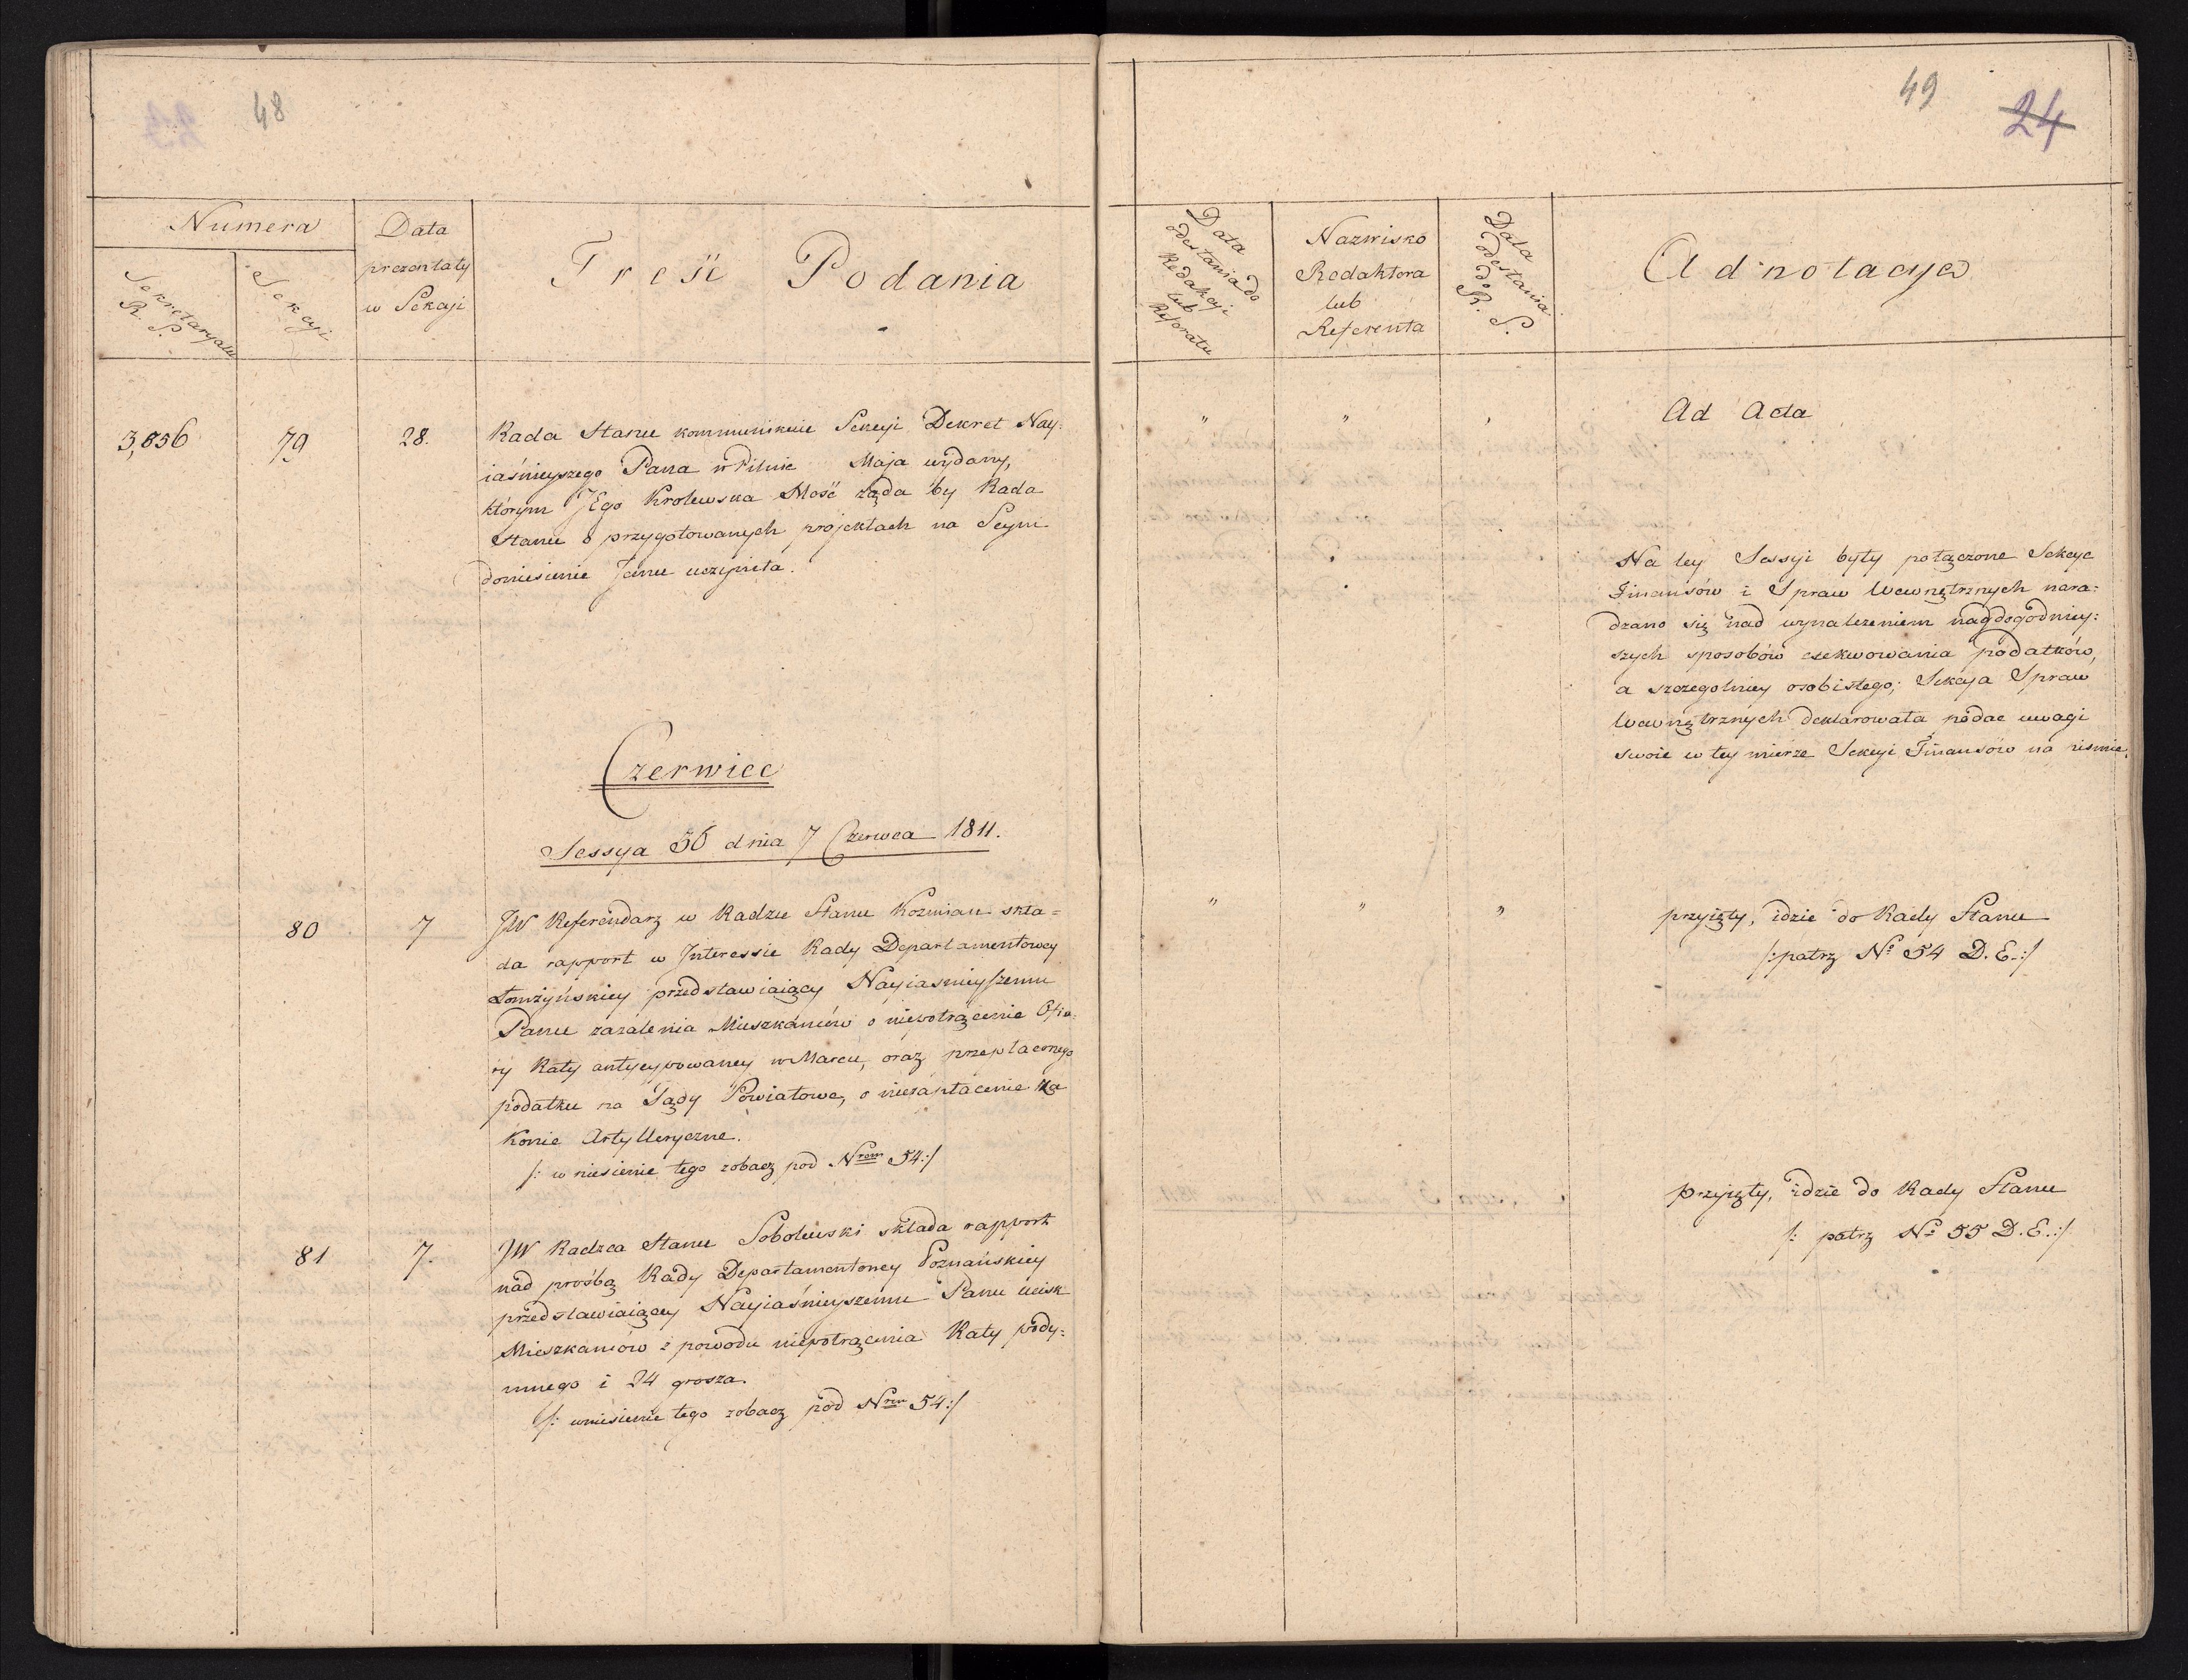 48
Numera
Sekretaryatu
R. S.
Sekcyi
Data
prezentaty
w Sekcyi
Treść Podania
3,856
79
28.
Rada Stanu kommunikuie Sekcyi Dekret Nay:
iaśnieyszego Pana w Pilnie Maja wydany,
którym JEgo Krolewska Mość żąda by Rada
Stanu o przygotowanych projektach na Seym
doniesienie Jemu uczyniła.
Czerwiec
Sessya 36 dnia 7 Czerwca 1811.
80
7
JW Referendarz w Radzie Stanu Kozmian skła=
da rapport w Interessie Rady Departamentowey
Łomżyńskiey przedstawiaiący Nayiasnieyszemu
Panu zażalenia Mieszkańców o niepotrącenie Ofia:
ry Raty antycypowaney w Marcu, oraz przepłaconego
podatku na Sądy Powiatowe, o niezapłacenie za
Konie Artylleryczne.
/: wniesienie tego zobacz pod Nrem 54:/
81
7.
JW Radzca Stanu Sobolewski składa rapport
nad prośbą Rady Departamentowey Poznańskiey
przedstawiaiącey Nayiaśnieyszemu Panu ucisk
Mieszkańców z powodu niepotrącenia Raty pody:
mnego i 24 grosza.
/: wniesienie tego zobacz pod Nrem 54:/
49
24
Data
odesłania do
Redakcyi
lub
Referatu
Nazwisko
Redaktora
lub
Referenta
Data
odesłania
do
R. S.
Adnotacya
" " "
Ad Acta
Na tey Sessyi były połączone Sekcye
Finansów i Spraw Wewnętrznych nara:
dzano się nad wynalezieniem naydogodniey:
szych sposobów exekwowania podatków,
a szczegolniey osobistego; Sekcya Spraw
Wewnętrznych deklarowała podac uwagi
swoie w tey mierze Sekcyi Finansów na pismie.
" " "
przyięty, idzie do Rady Stanu
/: patrz No 54 D. E.:/
przyięty, idzie do Rady Stanu
/: patrz No 55 D. E.:/